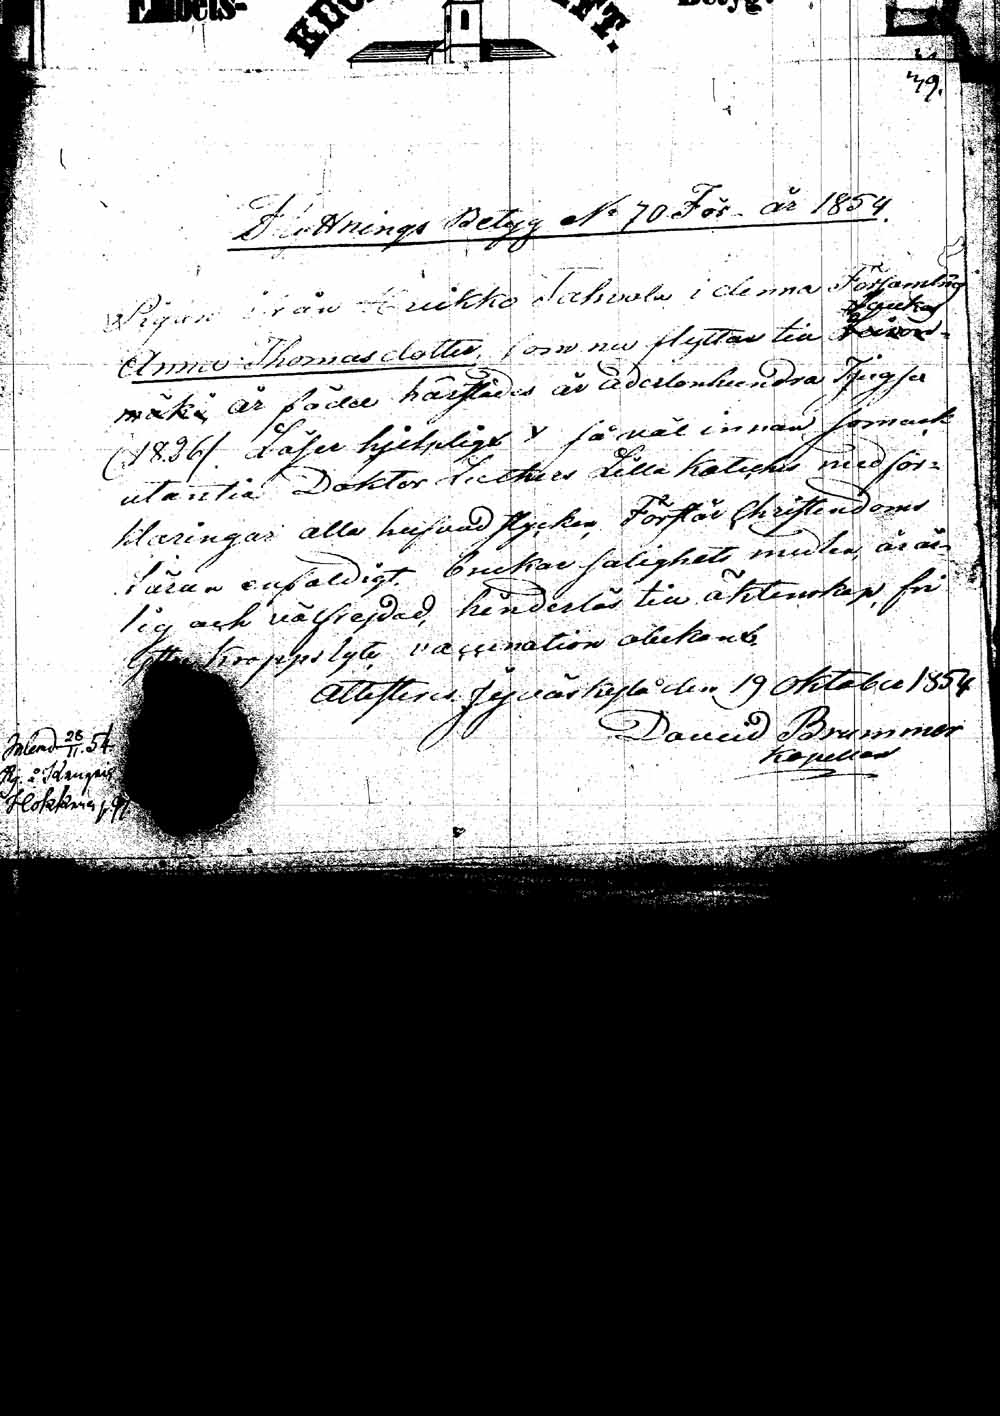 Embets- Betyg.
49.
Flyttnings Betyg No 70 För år 1854.
Pigan ifrån Heikko Tahvola i denna Församling
Anna Thomasdotter, som nu flyttar till
mäki är född härstädes år Adertonhundra Tjugse
(1826). Läser hjelpligt så väl innan som ock
utantill Doktor Luthers Lilla Kateches med för=
klaringar alla hufvudstycken, Förstår Christendoms
läran enfaldigt, brukar salighets medlen, är är=
lig och välfrejdad, hinderlös till äktenskap, fri
kroppslyte, vaccination obekant,
Attesteras Jyväskylä den 19 Oktober 1854
David Brummer
Kapellan
Inlemd 26/11 54.